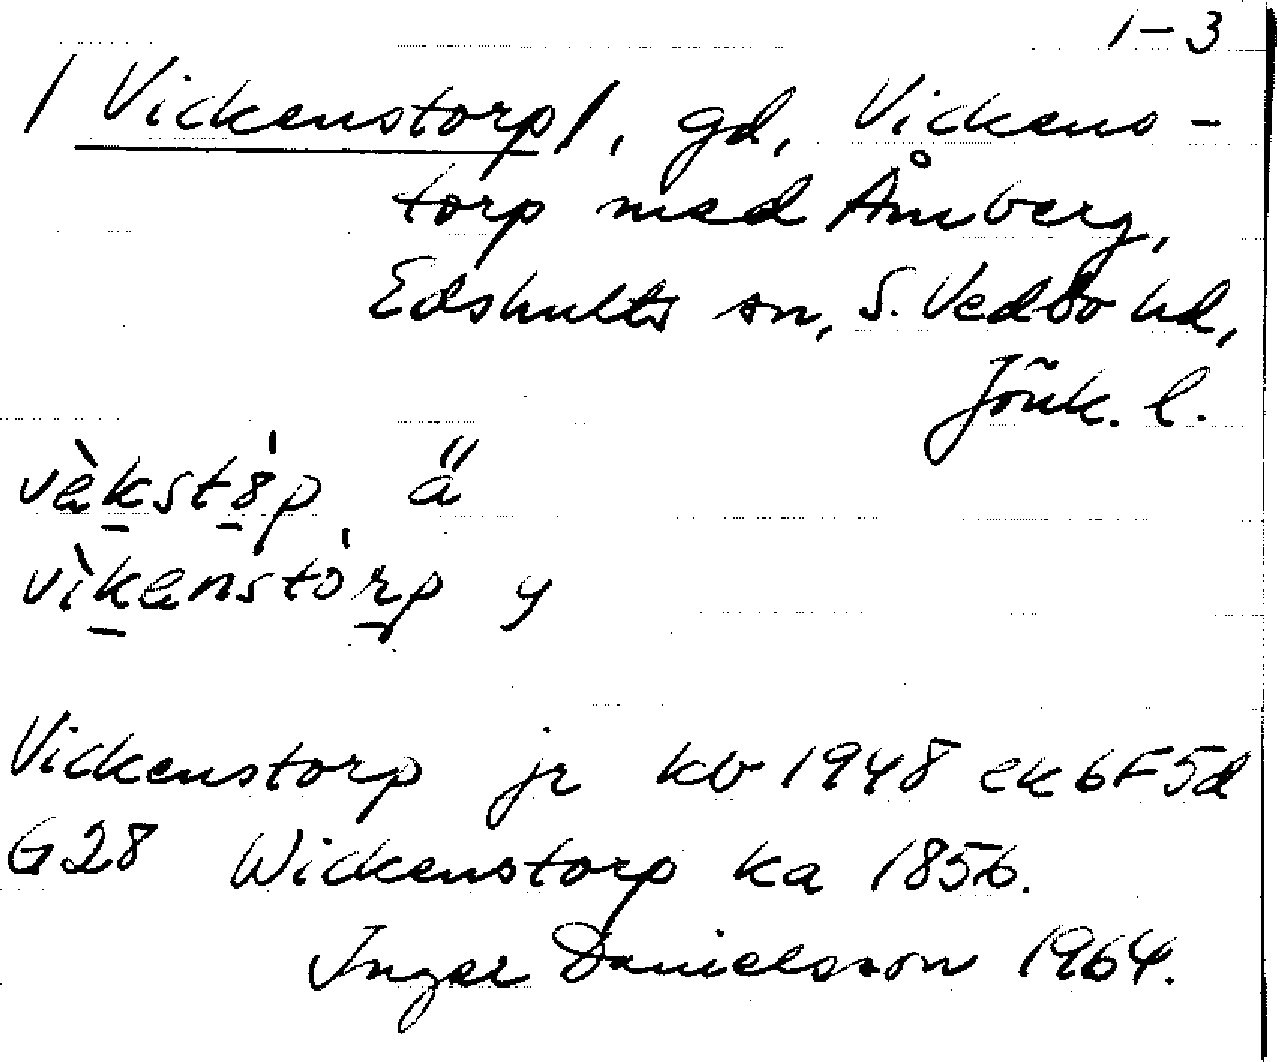 1-3
/Vickenstorp/, gd, Vickens-
torp med Åmberg,
Edshults sn, S. Vedbo hd,
Jönk. l.
vèkstȯ̀p, ä
vìkenstȯrp y
Vickenstorp jr kb 1948 ekb F5d
G28 Wickenstorp ka 1856.
Inger Danielsson 1964.